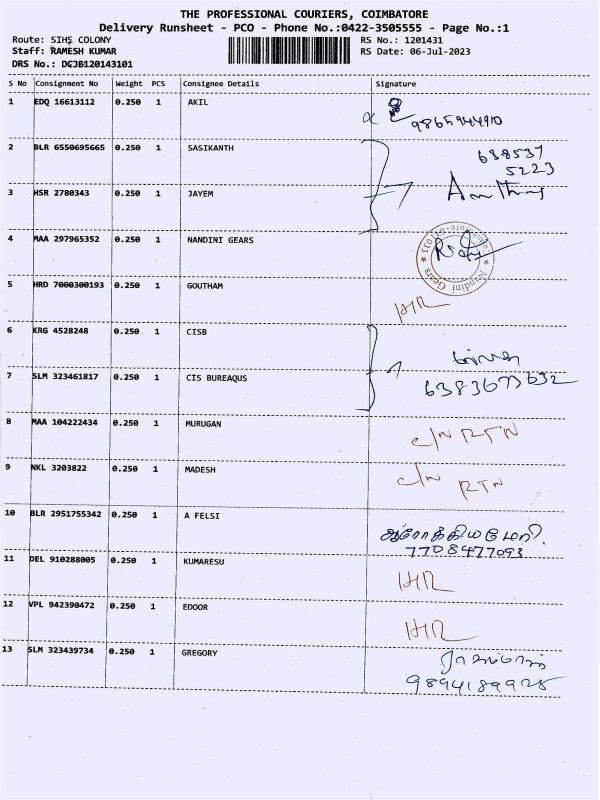 THE PROFESSIONAL COURIERS, COIMBATORE
Delivery Runsheet - PCO - Phone No.:0422-3505555 - Page No.:1
Route: SIHS COLONY RS No.: 1201431
Staff: RAMESH KUMAR RS Date: 06-Jul-2023
DRS No.: DCJB120143101
S No Consignment No Weight PCS Consignee Details Signature
1 EDQ 16613112 0.250 1 AKIL
9865944910
2 BLR 6550695665 0.250 1 SASIKANTH 638537
5223
3 HSR 2780343 0.250 1 JAYEM
4 MAA 297965352 0.250 1 NANDINI GEARS
Nandini Gears
5 HRD 7000300193 0.250 1 GOUTHAM
6 KRG 4528248 0.250 1 CISB
7 SLM 323461817 0.250 1 CIS BUREAQUS
8 MAA 104222434 0.250 1 MURUGAN C/N RTN
9 NKL 3203822 0.250 1 MADESH C/N RTN
10 BLR 2951755342 0.250 1 A FELSI ஆரோக்கிய மேரி.
7708477093
11 DEL 910288005 0.250 1 KUMARESU
12 VPL 942390472 0.250 1 EDOOR
13 SLM 323439734 0.250 1 GREGORY
9894189928